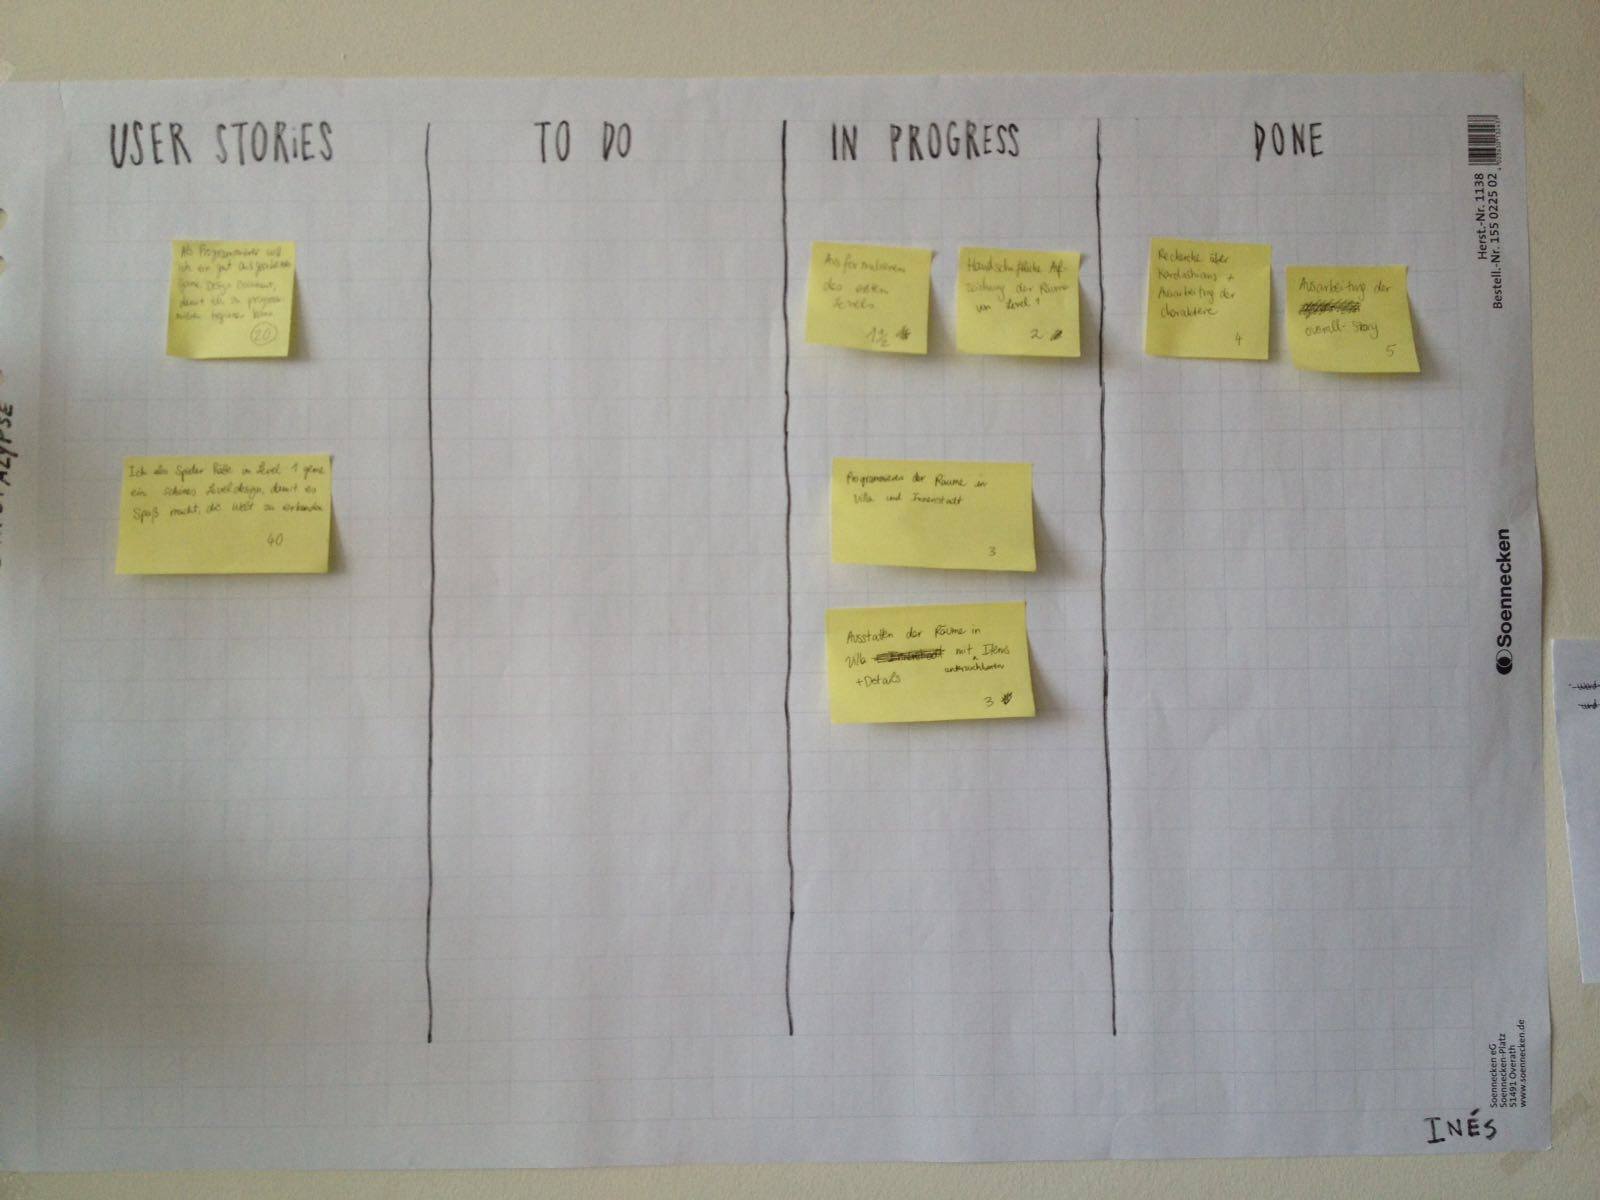 USER STORIES
TO DO
IN PROGRESS
DONE
Als Programmierer will
ich ein gut ausgearbeitetes
Game Design Document,
damit ich zu program-
mieren beginnen kann
20
Ich als Spieler hätte in Level 1 gerne
ein schönes Leveldesign, damit es
Spaß macht, die Welt zu erkunden
40
Ausformulieren
des ersten
Levels
1 1/2
Handschriftliche Auf-
zeichnung der Räume
von Level 1
2
Programmieren der Räume in
Villa und Innenstadt
3
Ausstatten der Räume in
Villa mit Items
untersuchbaren
+Details
3
Recherche über
Kardashians +
Ausarbeitung der
Charaktere
4
Ausarbeitung der
overall-Story
5
Herst.-Nr. 1138
Bestell.-Nr. 155 0225 02
Soennecken
Soennecken eG
Soennecken-Platz
51491 Overath
www.soennecken.de
INÉS